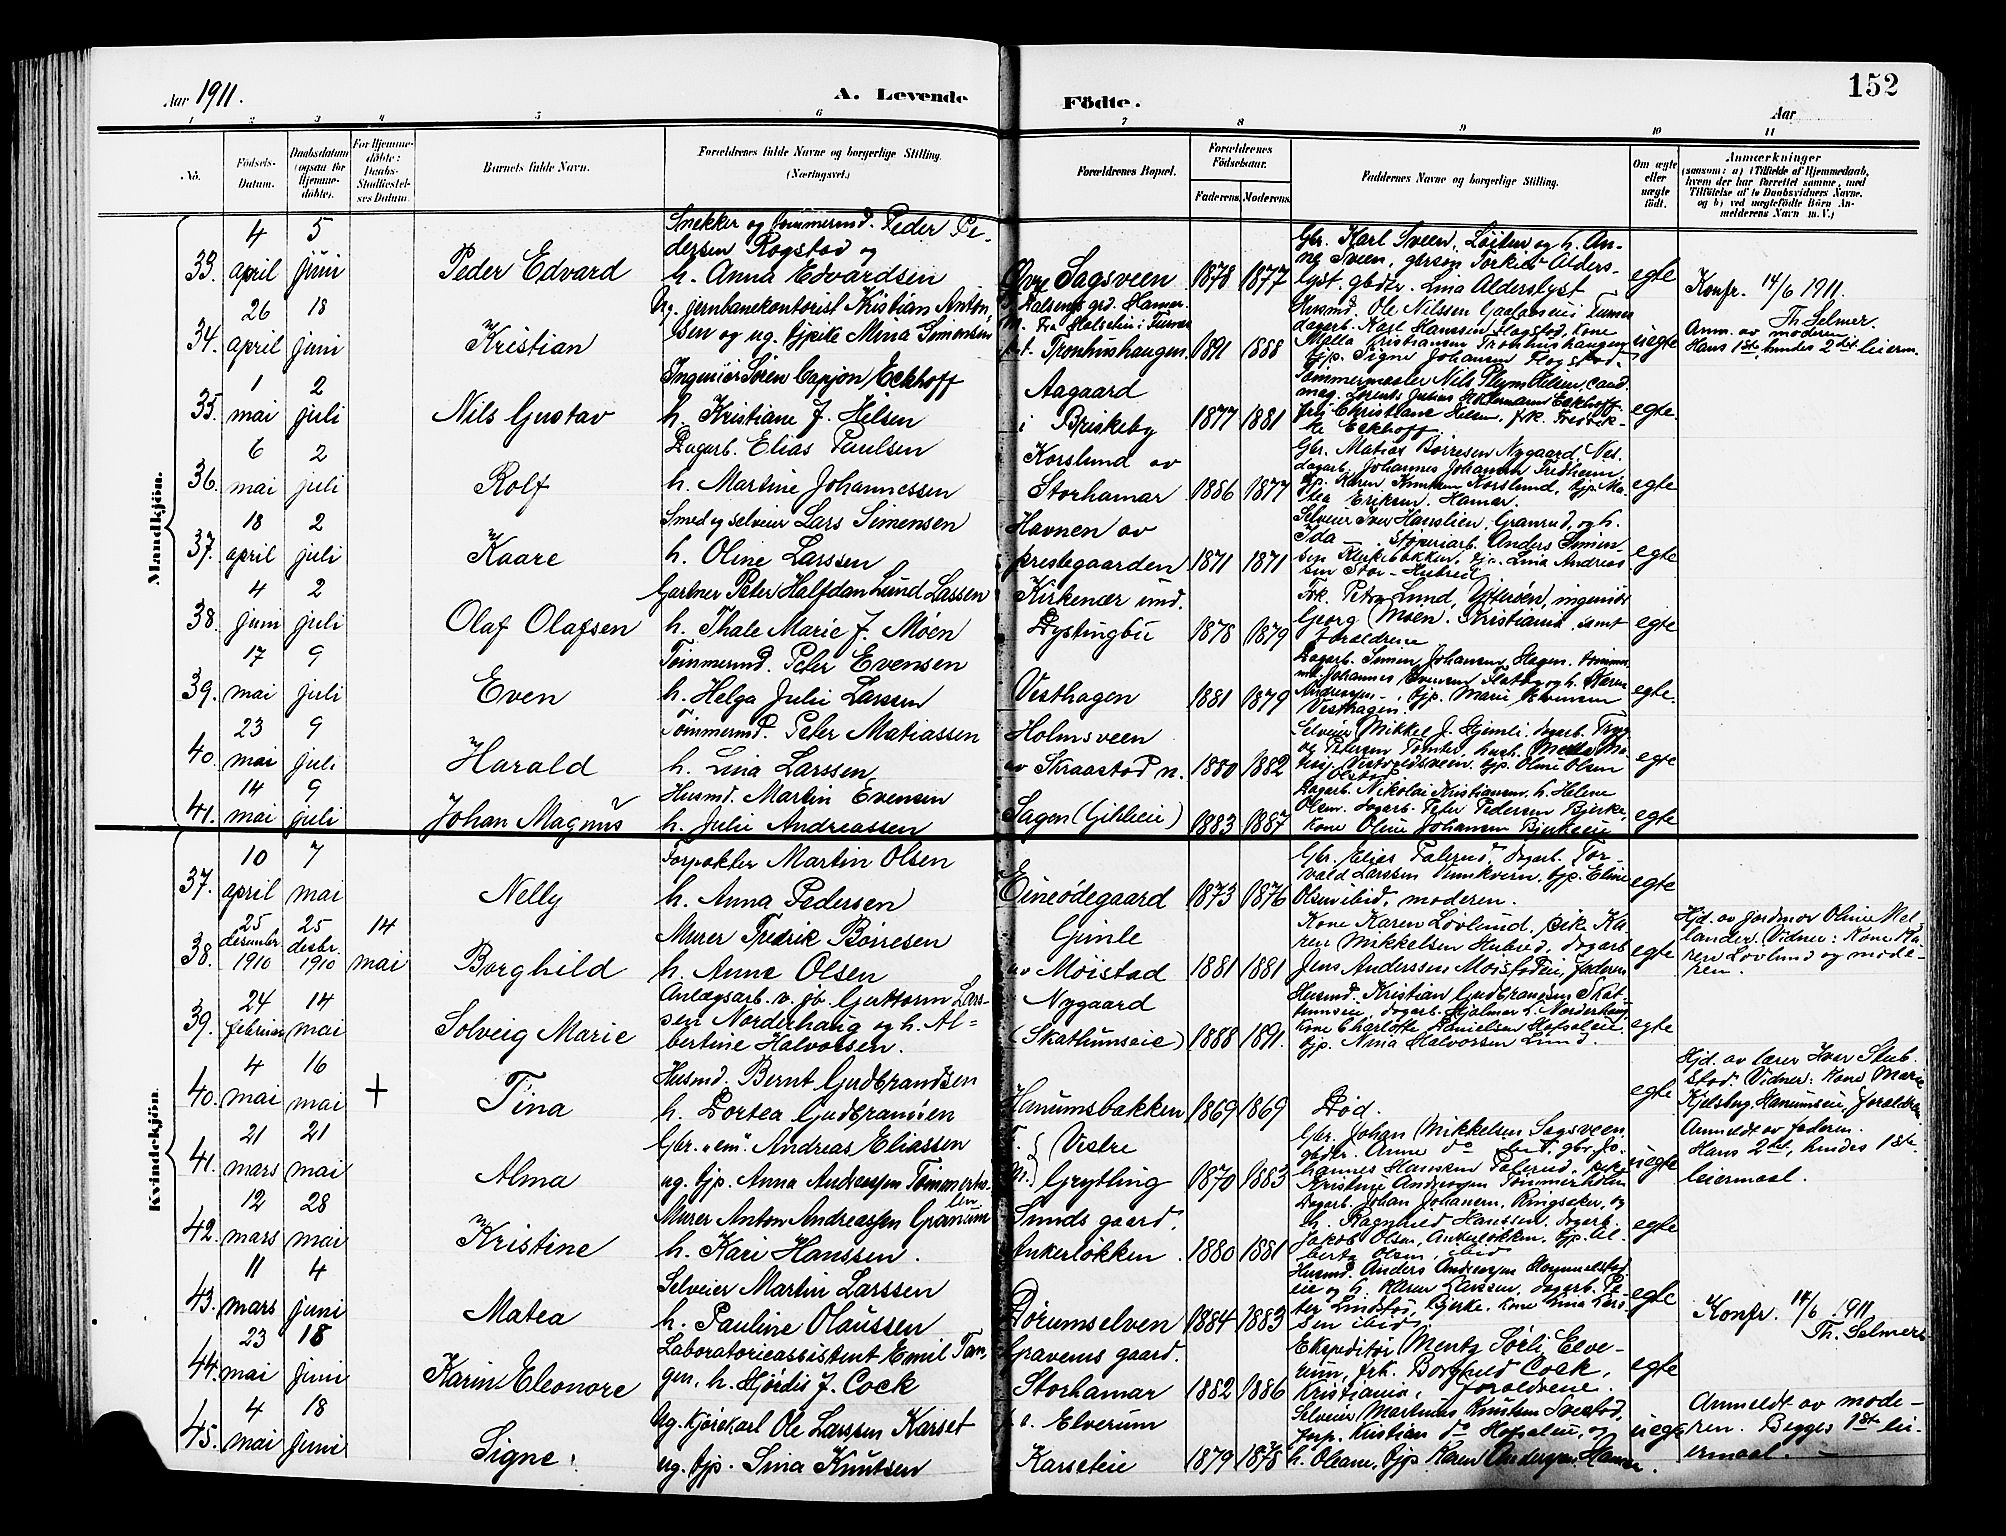 152
Aar 1911.
A. Levende Födte.
Aar
1 2 3 4 5 6 7 8 9 10 11
No.
Födsels-Datum.
Daabsdatum (ogsaa for Hjemmedöbte).
For Hjemmedöbte: Daabs-Stadfæstelses Datum.
Barnets fulde Navn.
Forældrenes fulde Navne og borgerlige Stilling. (Næringsvei.)
Forældrenes Bopæl.
Forældrenes Födselsaar.
Faderens. Moderens.
Faddernes Navne og borgerlige Stilling.
Om ægte eller uægte födt.
Anmærkninger
(saasom: a) i Tilfælde af Hjemmedaab, hvem der har forrettet samme, med Tilföielse af to Daabsvidners Navne, og b) ved uægtefödte Börn Anmelderens Navn m. V.)
Mandkjön.
33. 4 april 5 juni
Peder Edvard
Snekker og tømmermd. Peder Pedersen Rogstad og
h. Anna Edvardsen
Øvre Sagsveen 1878 1877
Gbr. Karl Sveen, Løiten og h. Anne Sveen,
Alderslyst, gbdtr. Lina Alderslyst
egte
Konfr. 14/6 1911.
Th. Selmer.
34. 26 april 18 juni
Kristian
Ug. jernbanekontorist Kristian Antonsen og ug. tjpike Mina Simonsen
Tronhushaugen 1891 1888
Husmd. Ole Nilssen
dagarb. Karl Hanssen Flagstad, kone
Mella Kristiansen Tronhushaugen
tjp. Signe Johansen Flagstad
uegte
Anm. av moderen
Hans 1ste, hendes 2det leierm.
35. 1 mai 2 juli
Nils Gustav
Ingeniør Søren Capjon Eckhoff
h. Kristiane J. Helsen
Aagaard
i Briskeby 1877 1881
Tømmermester Nils Helsen, cand.
mag. Lorents Justus Eckhoff
fru Christiane Helsen, frk. Fredrikke Eckhoff.
egte.
36. 6 mai 2 juli
Rolf
Dagarb. Elias Paulsen
h. Martine Johannessen
Korslund av
Storhamar 1886 1877
Gbr. Matias Børresen Nygaard, Ves.
dagarb. Johannes Johansen Fredheim
Karen Korslund, tjp. Matea Eriksen, Hamar.
egte
37. 18 april 2 juli
Kaare
Smed og selveier Lars Simensen
h. Oline Larssen
Havnen av
prestegaarden 1871 1871
Selveier Iver Hanslien, Granrud, og h.
Ida — Anders Simensen Klukebakken, tjp. Lina Andreassen Stor-Hubred
egte
38. 4 juni 2 juli
Olaf Olafsen
Gartner Peter Halfdan Lund Lassen
h. Thale Marie J. Moen
Kirkenær und.
Dystingbu 1878 1879
Frk. Petra Lund, Ytterøen, ingeniør
Georg Moen, Kristiania, samt
foraldrene
egte
39. 17 mai 9 juli
Even
Tømmermd. Peter Evensen
h. Helga Julie Larssen
Vesthagen 1881 1879
Dagarb. Simen Johansen Hagen, tømmermd. Johannes Evensen og h. Karen
Andersen, tjp. Marie Evensen
Vesthagen.
egte.
40. 23 mai 9 juli
Harald
Tømmermd. Peter Matiassen
h. Lina Larssen
Holmsveen
av Skraastad n. 1880 1882
Selveier Mikkel J. Hjemli, dagarb.
Petersen Tomter,
tjp. Oline Olsen
Olstad
egte
41. 14 mai 9 juli
Johan Magnus
Husmd. Martin Evensen
h. Julie Andreassen
Sagen (Gihleie) 1883 1887
Dagarb. Nikolai Kristiansen, h. Helene
Olsen, dagarb. Peter Pedersen Bjerke,
kone Oline Johansen Bjerkeeie
egte
Kvindekjön
37. 10 april 7 mai
Nelly
Forpakter Martin Olsen
h. Anna Pedersen
Eineødegaard 1873 1876
Gbr. Elias Falerud, dagarb. Torvald Larssen Vinnkvern, tjp. Eline
Olsen ibid, moderen.
egte
38. 25 desembr. 1910 25 desbr. 1910 14 mai
Borghild
Murer Fredrik Børresen
h. Anne Olsen
Gimle
av Møistad 1881 1881
Kone Karen Løvlund, pike Karen Mikkelsen Hubred, dagarb
Jens Anderssen Møistadeie, faderen
egte
Hjd. av jordmor Oline Melander. Vidner: Kone Karen Løvlund og moderen.
39. 24 februar 14 mai
Solveig Marie
Anlægsarb. v. jb. Guttorm Larssen Norderhaug og h. Albertine Halvorsen.
Nygaard
(Skattumseie) 1888 1891.
Husmd. Kristian Gudbrandsen Skattumseie, dagarb. Hjalmar L. Norderhaug,
kone Charlotte Danielsen Hofsaleie,
tjp. Anna Halvorsen Lund.
egte
40. 4 mai 16 mai +
Tina
Husmd. Bernt Gudbrandsen
h. Dortea Gudbrandsen
Hanumsbakken 1869 1869
Død.
egte
Hjd. av lærer Iver Stubstad. Vidner: Kone Marie
Kjelsberg, Hanumseie, foraldrene
Anmeldt av faderen.
41. 21 mars 21 mai
Alma
Gbr. "em" Andreas Eliassen
ug. tjp. Anna Andreassen Tømmerholen
F. M. } Vestre
Grytling 1870 1883
Gbr. Johan Mikkelsen Sagsveen
gbdtr. Anne do ibid, gbr. Johannes Hanssen Falerud, pike
Kristine Andreasen Tømmerholen
uegte
Hans 2det, hendes 1ste
leiermaal.
42. 12 mars 28 mai
Kristine
Murer Anton Andreassen Granum
h. Kari Hanssen.
Lunds gaard.
Ankerløkken 1880 1881
Dagarb. Johan Johansen, Ringsaker, og
h. Ragnhild Hanssen, dagarb.
Jakob Olsen, Ankerløkken, tjp. Alberta Olsen, ibid
egte
43. 11 mars 4 juni
Matea
Selveier Martin Larssen
h. Pauline Olaussen
Dørumselven 1884 1883
Husmd. Anders Andersen Hommelstadeie og h. Karen Larssen, dagarb. Peter Lindstad, Bjerke, kone Lina Larssen ibid.
egte
Konfr. 14/6 1911
Th. Selmer
44. 23 mai 18 juni
Karin Eleonore
Laboratorieassistent Emil Tangen, h. Hjördis J. Cock
Gravens gaard.
Storhamar 1882 1886
Ekspeditør Mentz Sørli, Elverum, frk. Borghild Cock,
Kristiania, foraldrene.
egte
45. 4 mai 18 juni
Signe
Ug. kjørekarl Ole Larssen Karset
ug. tjp. Lina Knutsen
f. a. Elverum
Karseteie 1879 1878
Selveier Martinus Knutsen Svestad,
forp. Kristian do Hofsaleie, og
h. Oleane, tjp. Karen Andersen, Hamar.
uegte
Anmeldt av moderen. Begges 1ste leiermaal.